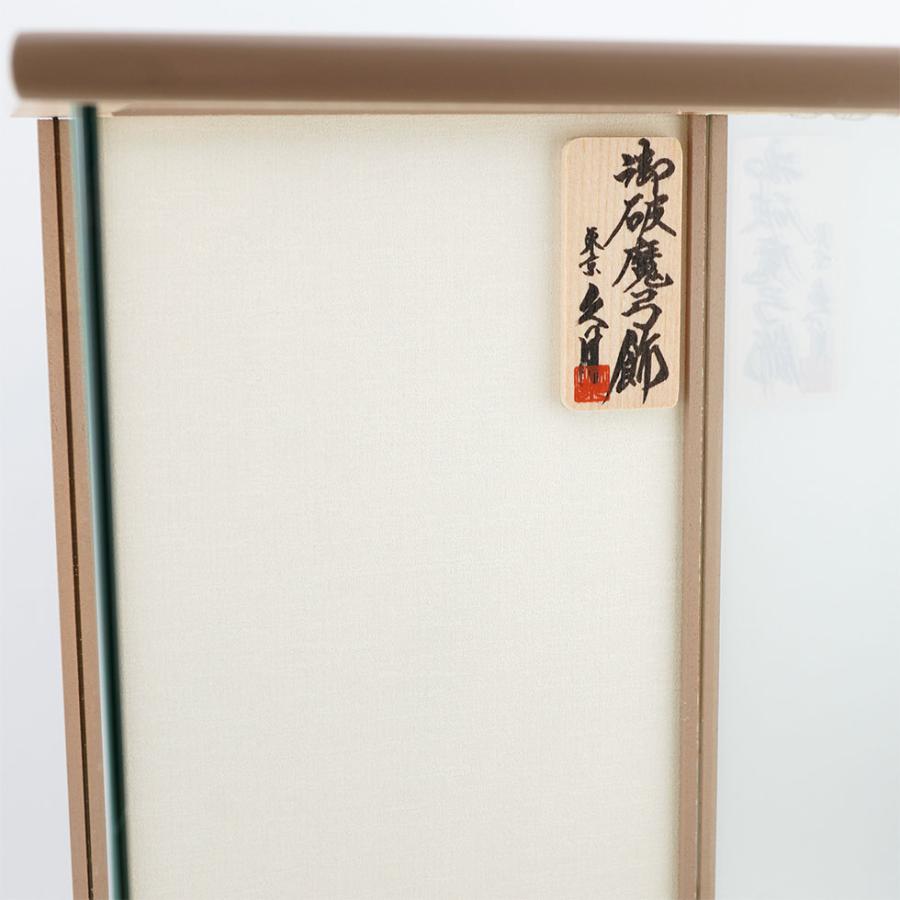 御破魔弓飾
東京 久月